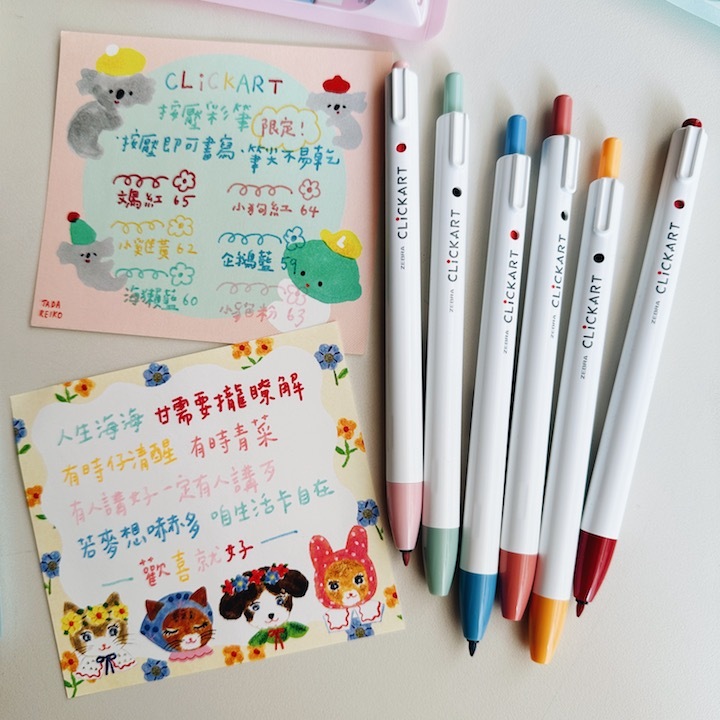 CLiCKART
按壓彩筆
限定!
按壓即可書寫 筆尖不易乾
鴉紅 65
小狗紅 64
小雞黃 62
企鵝藍 59
海獺藍 60
粉 63
TADA
REIKO
人生海海 甘需要攏瞭解
有時仔清醒 有時青菜
有人講好一定有人講歹
若麥想嚇赫多 咱生活卡自在
歡喜就好
ZEBRA CLiCKART
ZEBRA CLiCKART
ZEBRA CLiCKART
ZEBRA CLiCKART
ZEBRA CLiCKART
ZEBRA CLiCKART